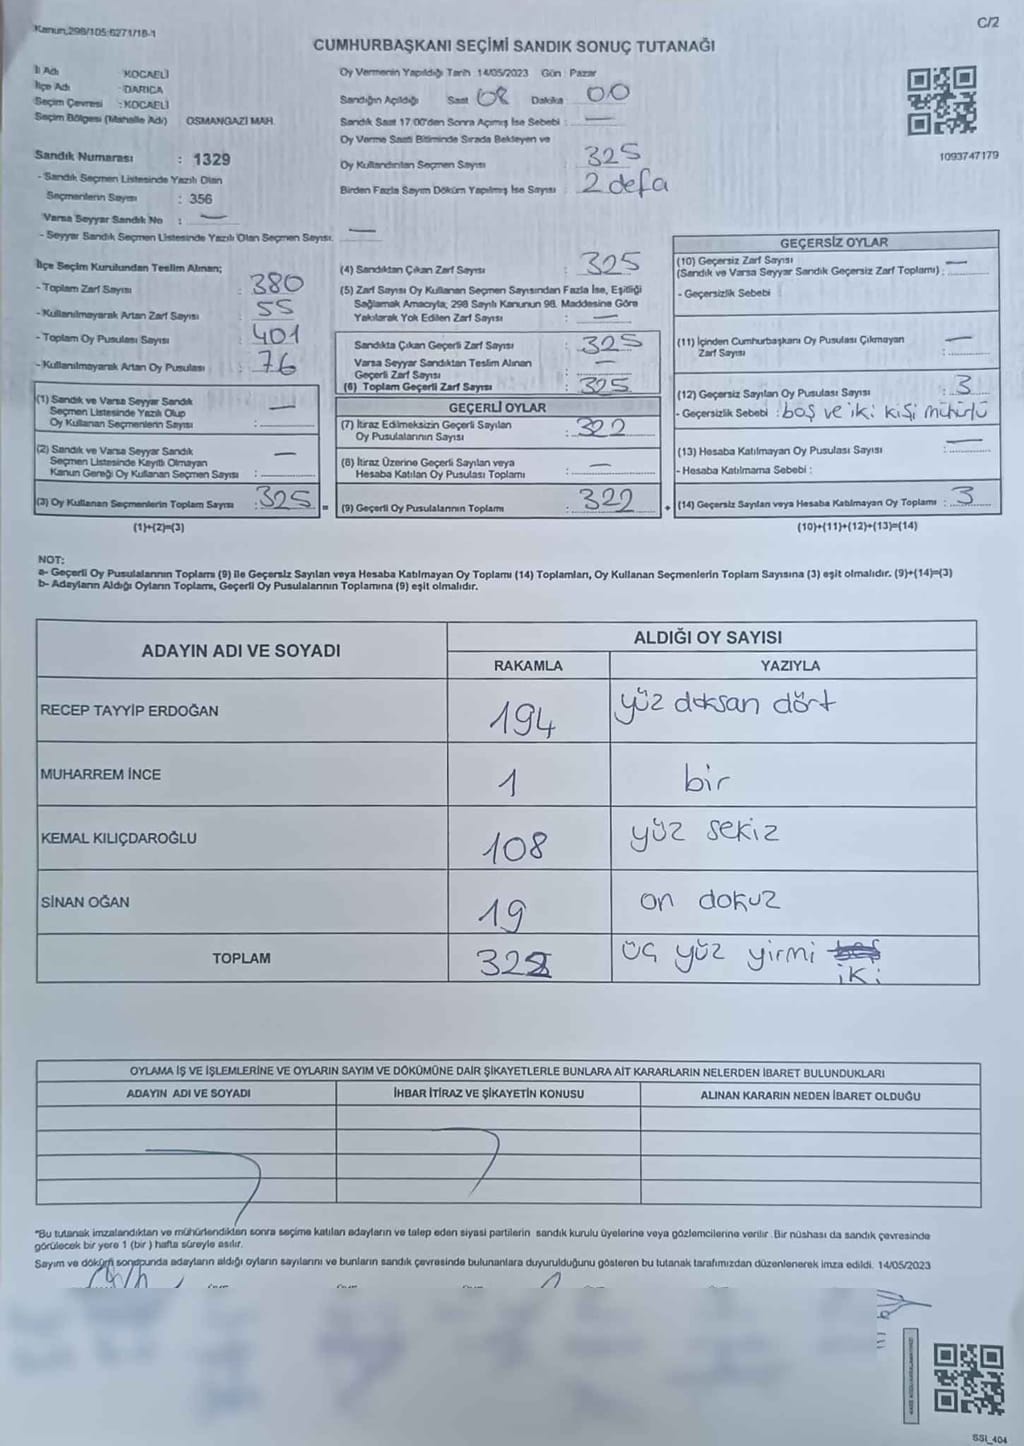 Kanun,298/105:6271/18-1
C/2
CUMHURBAŞKANI SEÇİMİ SANDIK SONUÇ TUTANAĞI
İl Adı : KOCAELİ
İlçe Adı : DARICA
Seçim Çevresi : KOCAELİ
Seçim Bölgesi (Mahalle Adı) OSMANGAZİ MAH.
Sandık Numarası : 1329
- Sandık Seçmen Listesinde Yazılı Olan
Seçmenlerin Sayısı : 356
Varsa Seyyar Sandık No : —
- Seyyar Sandık Seçmen Listesinde Yazılı Olan Seçmen Sayısı. —
Oy Vermenin Yapıldığı Tarih 14/05/2023 Gün : Pazar
Sandığın Açıldığı Saat 08 Dakika 00
Sandık Saat 17:00'den Sonra Açımış İse Sebebi : —
Oy Verme Saati Bitiminde Sırada Bekleyen ve
Oy Kullandırılan Seçmen Sayısı : 325
Birden Fazla Sayım Döküm Yapılmış İse Sayısı : 2 defa
1093747179
İlçe Seçim Kurulundan Teslim Alınan;
- Toplam Zarf Sayısı : 380
- Kullanılmayarak Artan Zarf Sayısı : 55
- Toplam Oy Pusulası Sayısı : 401
- Kullanılmayarak Artan Oy Pusulası : 76
(1) Sandık ve Varsa Seyyar Sandık
Seçmen Listesinde Yazılı Olup
Oy Kullanan Seçmenlerin Sayısı : —
(2) Sandık ve Varsa Seyyar Sandık
Seçmen Listesinde Kayıtlı Olmayan
Kanun Gereği Oy Kullanan Seçmen Sayısı : —
(3) Oy Kullanan Seçmenlerin Toplam Sayısı : 325 =
(1)+(2)=(3)
(4) Sandıktan Çıkan Zarf Sayısı : 325
(5) Zarf Sayısı Oy Kullanan Seçmen Sayısından Fazla İse, Eşitliği
Sağlamak Amacıyla; 298 Sayılı Kanunun 98. Maddesine Göre
Yakılarak Yok Edilen Zarf Sayısı : —
Sandıkta Çıkan Geçerli Zarf Sayısı : 325
Varsa Seyyar Sandıktan Teslim Alınan
Geçerli Zarf Sayısı : —
(6) Toplam Geçerli Zarf Sayısı : 325
GEÇERLİ OYLAR
(7) İtiraz Edilmeksizin Geçerli Sayılan
Oy Pusulalarının Sayısı : 322
(8) İtiraz Üzerine Geçerli Sayılan veya
Hesaba Katılan Oy Pusulası Toplamı : —
(9) Geçerli Oy Pusulalarının Toplamı : 322 +
GEÇERSİZ OYLAR
(10) Geçersiz Zarf Sayısı
(Sandık ve Varsa Seyyar Sandık Geçersiz Zarf Toplamı) : —
- Geçersizlik Sebebi :
(11) İçinden Cumhurbaşkanı Oy Pusulası Çıkmayan
Zarf Sayısı : —
(12) Geçersiz Sayılan Oy Pusulası Sayısı : 3
- Geçersizlik Sebebi : boş ve iki kişi mühürlü
(13) Hesaba Katılmayan Oy Pusulası Sayısı : —
- Hesaba Katılmama Sebebi :
(14) Geçersiz Sayılan veya Hesaba Katılmayan Oy Toplamı : 3
(10)+(11)+(12)+(13)=(14)
NOT:
a- Geçerli Oy Pusulalarının Toplamı (9) ile Geçersiz Sayılan veya Hesaba Katılmayan Oy Toplamı (14) Toplamları, Oy Kullanan Seçmenlerin Toplam Sayısına (3) eşit olmalıdır. (9)+(14)=(3)
b- Adayların Aldığı Oyların Toplamı, Geçerli Oy Pusulalarının Toplamına (9) eşit olmalıdır.
ADAYIN ADI VE SOYADI
ALDIĞI OY SAYISI
RAKAMLA YAZIYLA
RECEP TAYYİP ERDOĞAN 194 yüz doksan dört
MUHARREM İNCE 1 bir
KEMAL KILIÇDAROĞLU 108 yüz sekiz
SİNAN OĞAN 19 on dokuz
TOPLAM 322 üç yüz yirmi
iki
OYLAMA İŞ VE İŞLEMLERİNE VE OYLARIN SAYIM VE DÖKÜMÜNE DAİR ŞİKAYETLERLE BUNLARA AİT KARARLARIN NELERDEN İBARET BULUNDUKLARI
ADAYIN ADI VE SOYADI İHBAR İTİRAZ VE ŞİKAYETİN KONUSU ALINAN KARARIN NEDEN İBARET OLDUĞU
*Bu tutanak imzalandıktan ve mühürlendikten sonra seçime katılan adayların ve talep eden siyasi partilerin sandık kurulu üyelerine veya gözlemcilerine verilir. Bir nüshası da sandık çevresinde
görülecek bir yere 1 (bir) hafta süreyle asılır.
Sayım ve döküm sonucunda adayların aldığı oyların sayılarını ve bunların sandık çevresinde bulunanlara duyurulduğunu gösteren bu tutanak tarafımızdan düzenlenerek imza edildi. 14/05/2023
SSI_404